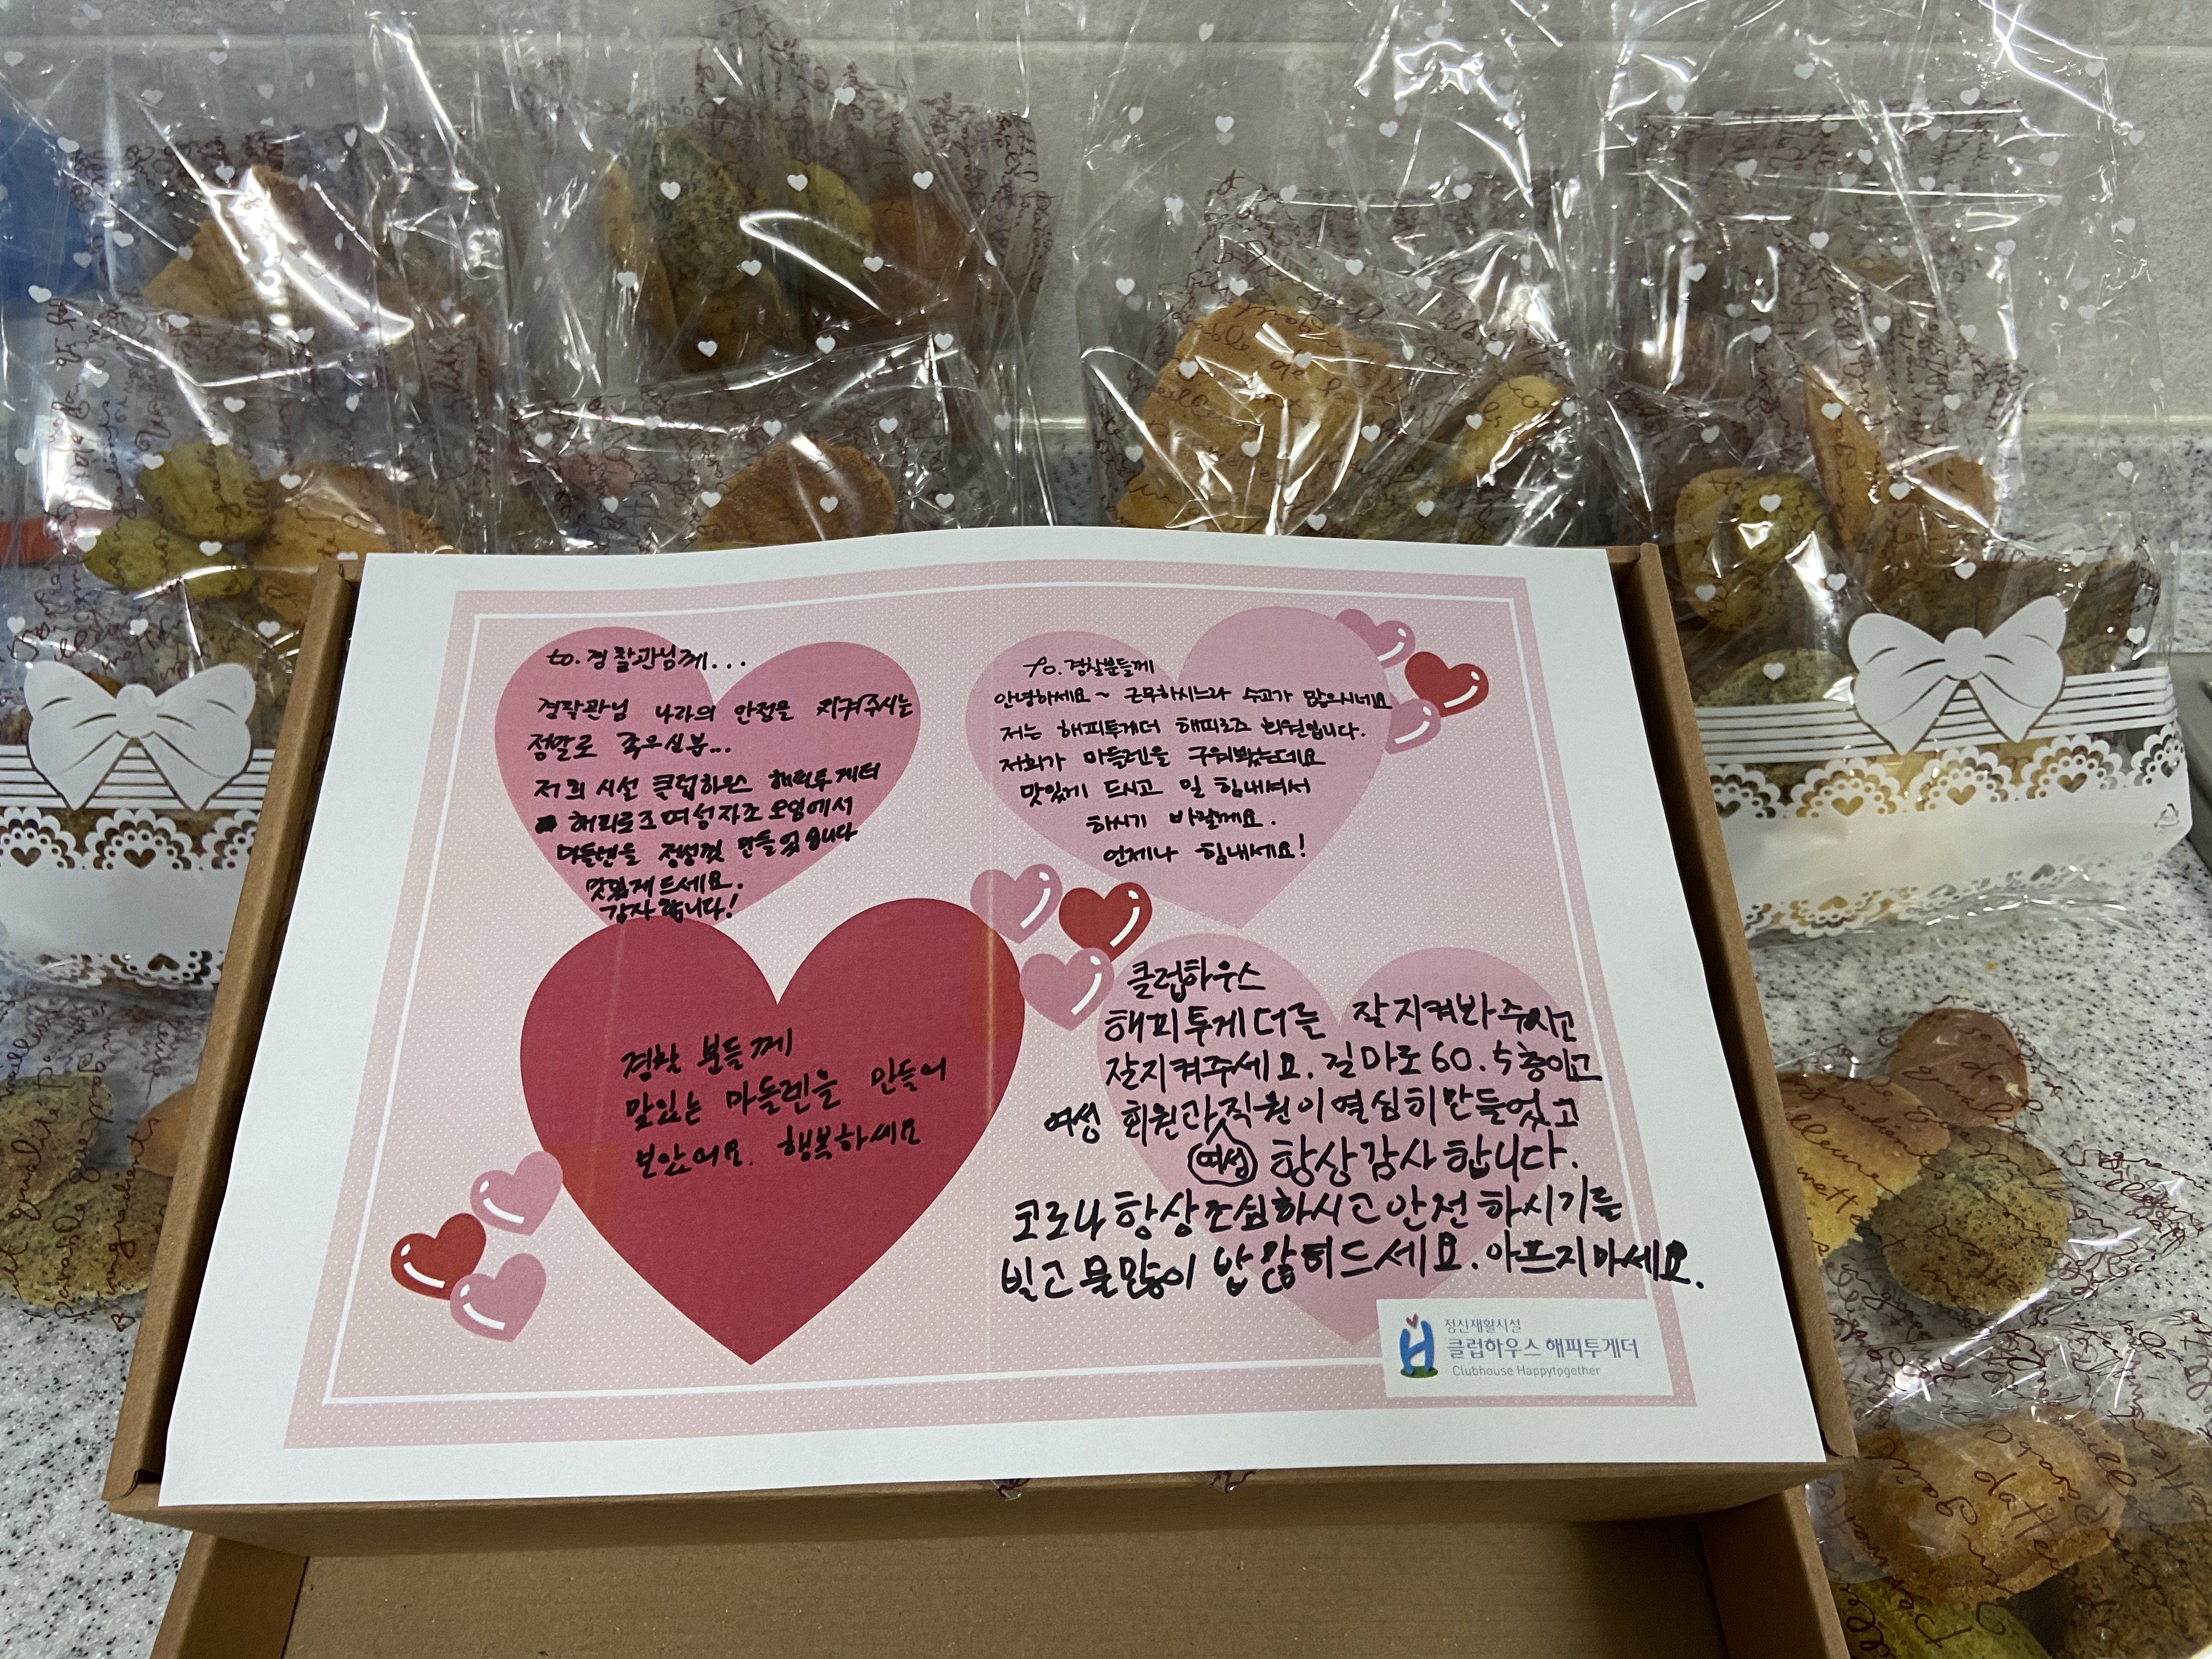 to.경찰관님께...
경찰관님 나라의 안전을 지켜주시는
정말로 좋으신분...
저희 시설 클럽하우스 해피투게더
해피로즈여성자조모임에서
마들렌을 정성껏 만들었습니다
맛있게드세요.
감사합니다!
To. 경찰분들께
안녕하세요~ 근무하시느라 수고가 많으시네요
저는 해피투게더 해피로즈 회원입니다.
저희가 마들렌을 구워봤는데요
맛있게 드시고 일 힘내셔서
하시기 바랄께요.
언제나 힘내세요!
경찰 분들께
맛있는 마들렌을 만들어
보았어요. 행복하세요
클럽하우스
해피투게더를 잘지켜봐주시고
잘지켜주세요. 길마로60. 5층이고
여성 회원과 여성 직원이열심히만들었고
항상감사합니다.
코로나항상조심하시고안전하시기를
빌고물많이 밥 드세요. 아프지마세요.
정신재활시설
클럽하우스 해피투게더
Clubhouse Happytogether